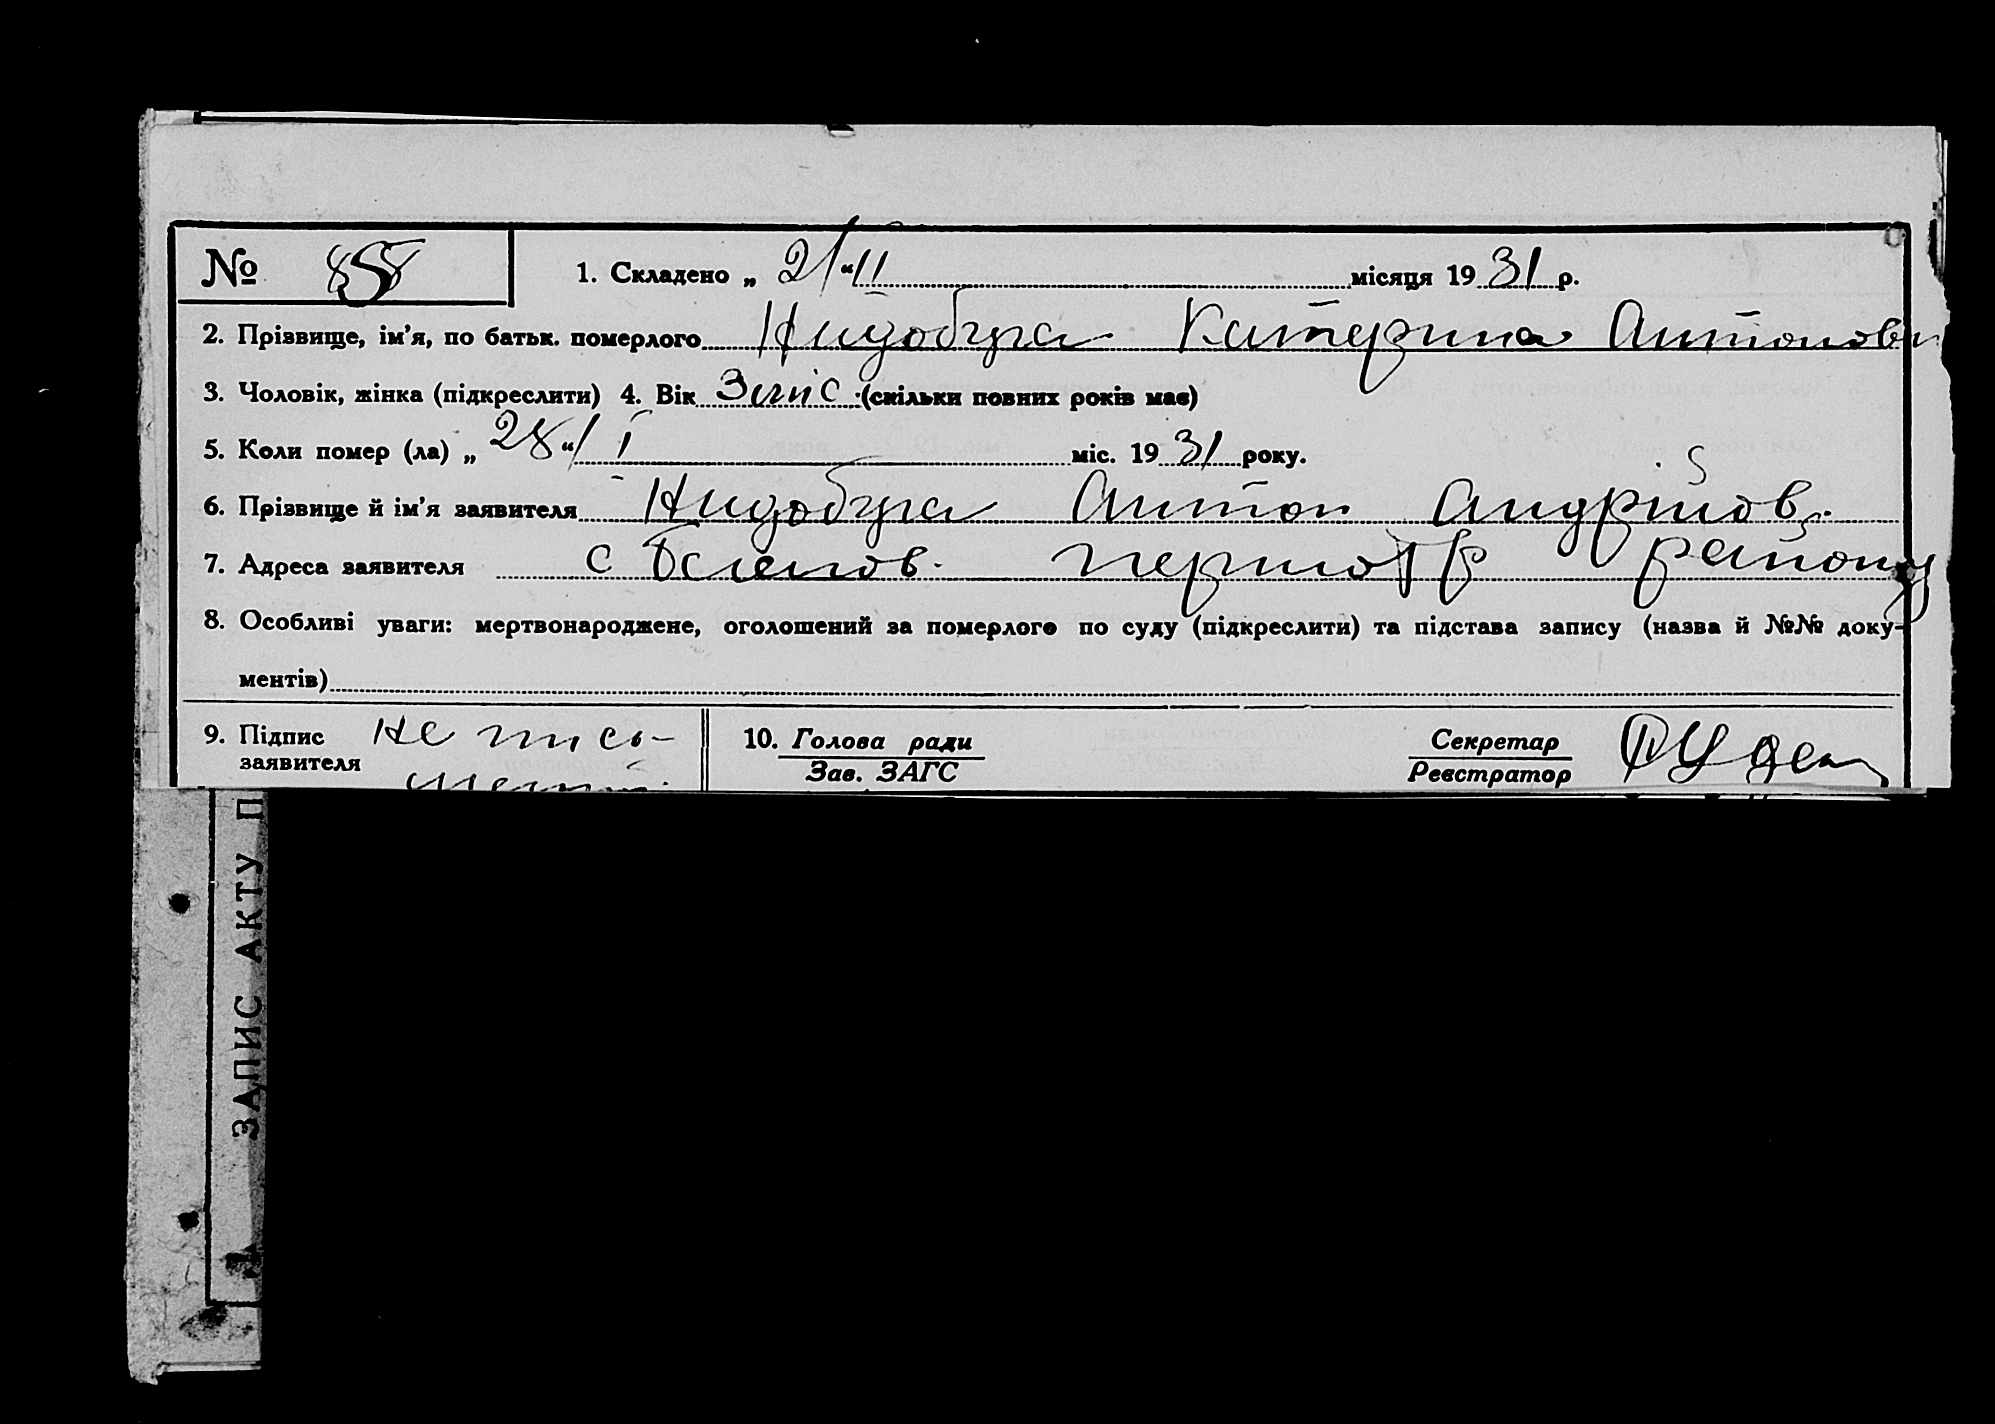 № 858 1. Складено „ 21 “ II місяця 19 31 р.
2. Прізвище, ім'я, по батьк. померлого Нидобуга Катерина Антонов
3. Чоловік, жінка (підкреслити) 4. Вік 3 міс (скільки повних років має)
5. Коли помер (ла) „ 28 “/ I міс. 19 31 року.
6. Прізвище й ім'я заявителя Нидобуга Антон Андрійов.
7. Адреса заявителя с району
8. Особливі уваги: мертвонароджене, оголошений за померлого по суду (підкреслити) та підстава запису (назва й №№ доку-
ментів)
9. Підпис Не пись- 10. Голова ради Секретар
заявителя Зав. ЗАГС Реєстратор
ЗАПИС АКТУ П